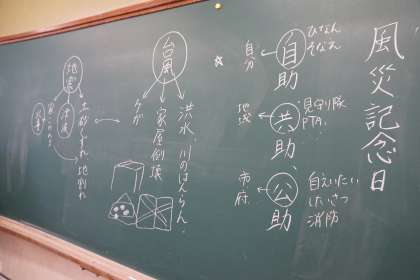 風災記念日
自助
ひなん
そなえ
自分
共助
見守り隊
PTA.
地域
公助
自えいたい
けいさつ
消防
市
府
台風
洪水、川のはんらん、
家屋倒壊
ケガ
地震
土砂くずれ 地割れ
津波
火事